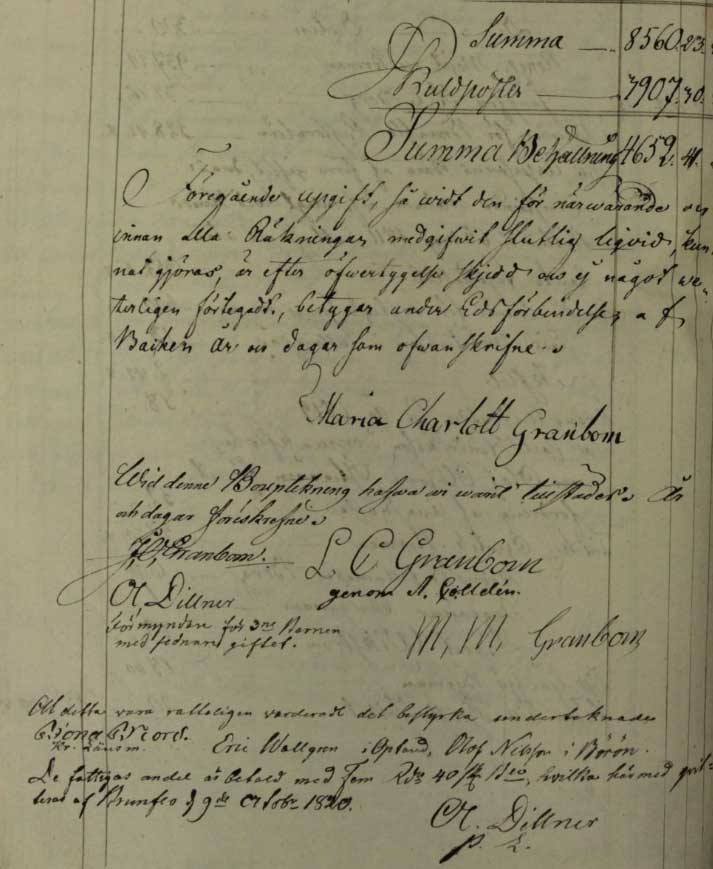 Summa — 8560.23.
Skuldposter — 3907.30.
Summa Behållning 4652. 41.
Föregående upgift, så widt den för närwarande och
innan alla Räkningar medgifwit slutlig liqvid, kun-
nat gjöras, är efter öfwertygelse skjedd och ej något we-
terligen förtegadt, betygar under Edsförbindelse, af
Backen År och dagar som ofwanskrifne.
Maria Charlott Granbom
Wid denne Bouptekning hafwa wi warit tillstädes. År
och dagar föreskrefne.
Granbom. L C Granbom
O, Dillner genom A.
Förmyndare för 3ne Barnen
med sednare giftet. M, M, Granbom
At detta vara rätteligen varderadt det bestyrka undertecknade
Kr. Länsm. Eric Wallgren i Opland, Olof Nilsson i Börön.
De fattigas andel är betald med Fem Rdr 40 sk Bco, hvilka härmed qvit-
teras af Brunflo d 9de Octobr 1820.
O. Dillner
p. L.